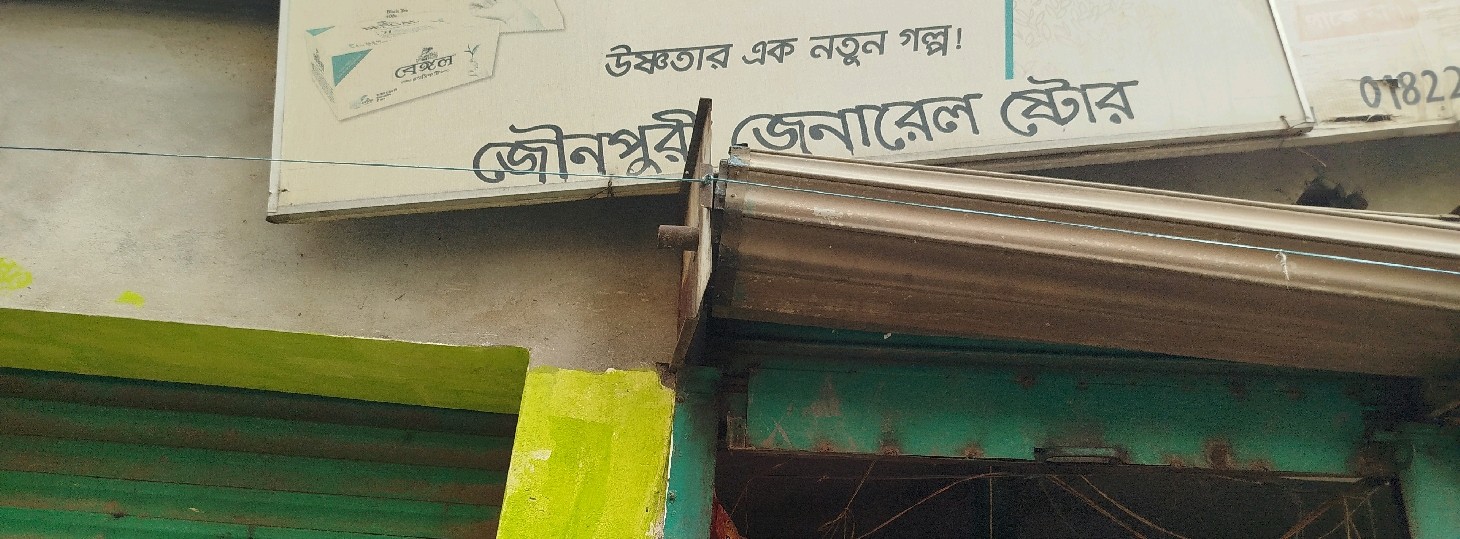 বেঙ্গল
উষ্ণতার এক নতুন গল্প!
জৌনপুরী জেনারেল ষ্টোর
01822